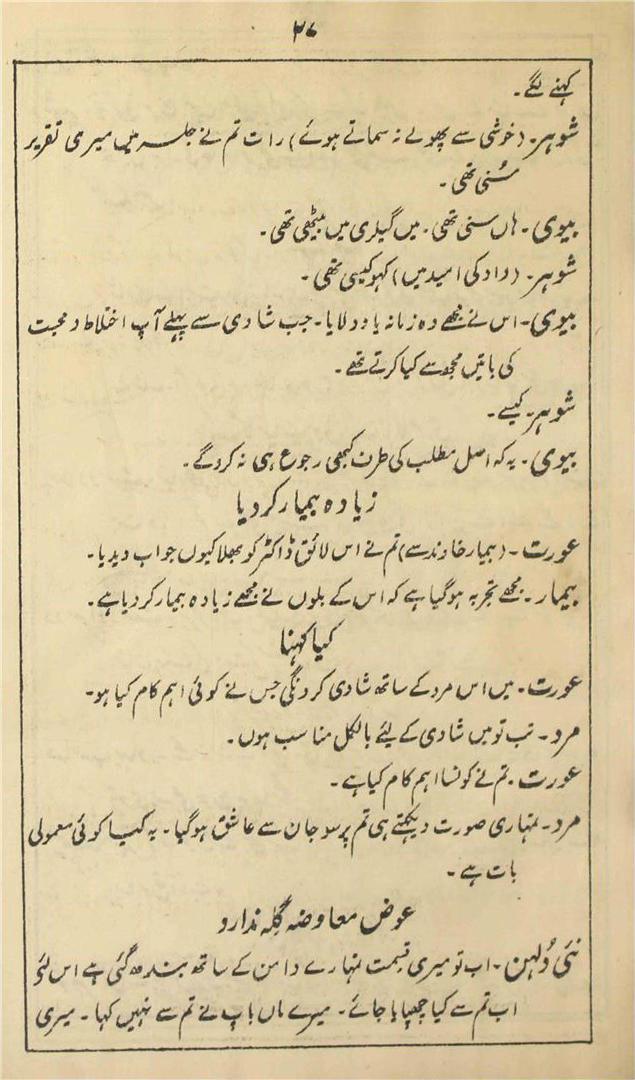 ۳۷
کہنے لگے۔
شوہر۔ (خوشی سے پھولے نہ سماتے ہوئے) رات تم نے جلسہ میں میری تقریر
سُنی تھی۔
بیوی۔ ہاں سنی تھی۔ میں گیلری میں بیٹھی تھی۔
شوہر۔ (داد کی امید میں) کہو کیسی تھی۔
بیوی۔ اس نے مجھے وہ زمانہ یاد دلایا۔ جب شادی سے پہلے آپ اختلاط و محبت
کی باتیں مجھ سے کیا کرتے تھے۔
شوہر۔ کیسے۔
بیوی۔ یہ کہ اصل مطلب کی طرف کبھی رجوع ہی نہ کروگے۔
زیادہ بیمار کردیا
عورت۔ (بیمار خاوند سے) تم نے اس لائق ڈاکٹر کو بھلا کیوں جواب دیدیا۔
بیمار۔ مجھے تجربہ ہوگیا ہے کہ اس کے بلوں نے مجھے زیادہ بیمار کردیا ہے۔
کیا کہنا
عورت۔ میں اس مرد کے ساتھ شادی کرونگی جس نے کوئی اہم کام کیا ہو۔
مرد۔ تب تو میں شادی کے لئے بالکل مناسب ہوں۔
عورت۔ تم نے کونسا اہم کام کیا ہے۔
مرد۔ تمہاری صورت دیکھتے ہی تم پر سو جان سے عاشق ہوگیا۔ یہ کیا کوئی معمولی
بات ہے۔
عوض معاوضہ گِلہ ندارو
نئی دُلہن۔ اب تو میری قسمت تمہارے دامن کے ساتھ بندھ گئی ہے اس لئے
اب تم سے کیا چھپایا جائے۔ میرے ماں باپ نے تم سے نہیں کہا۔ میری